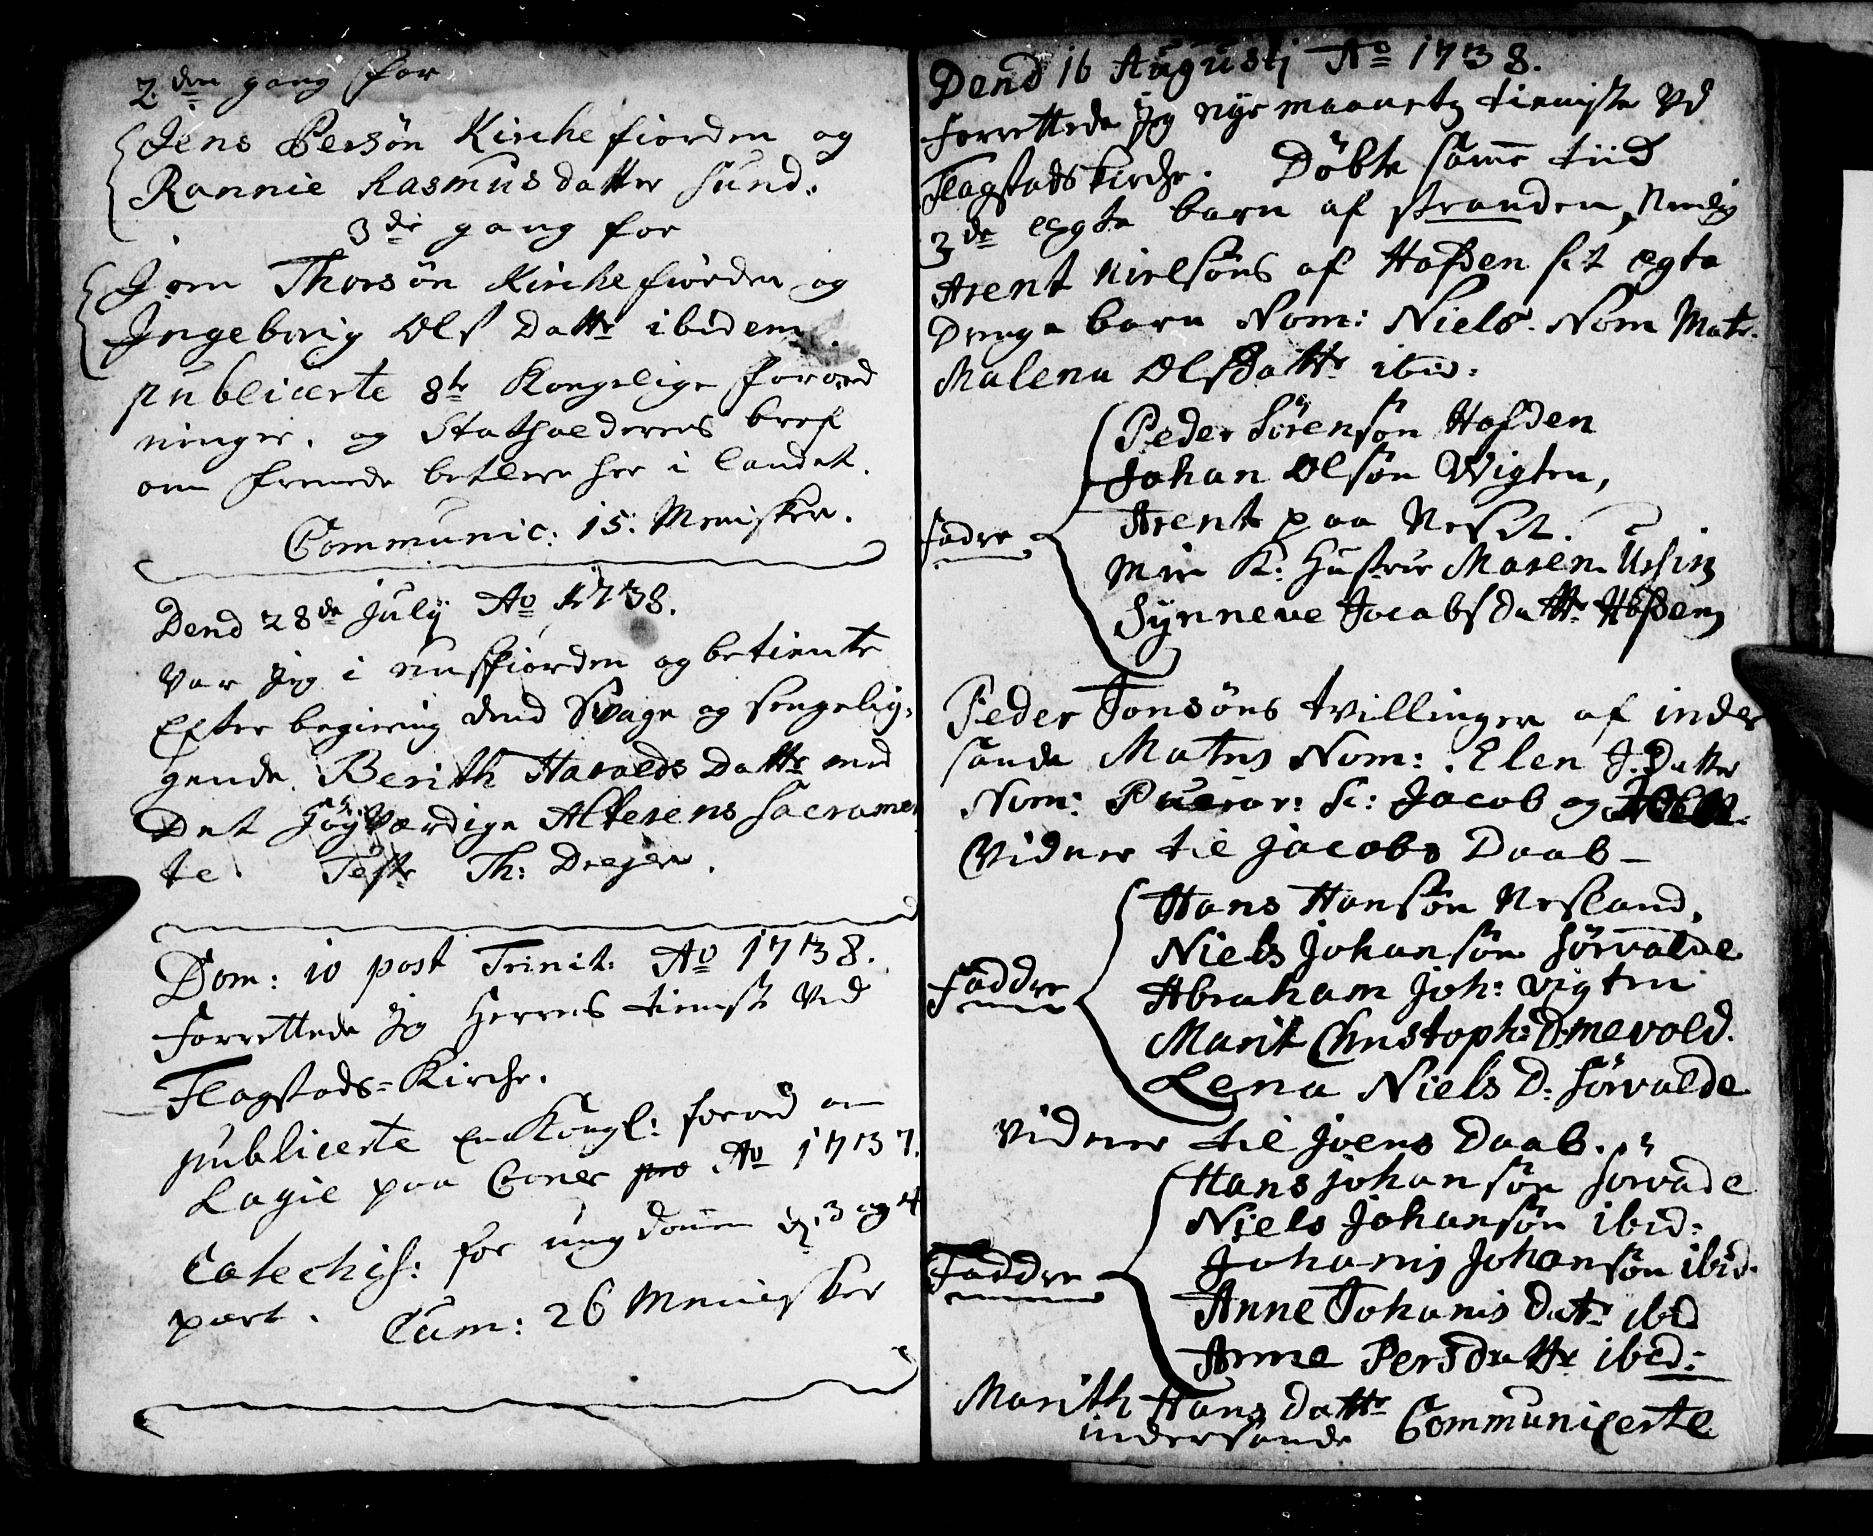 2den gang for
Jens Persön Kirchefiorden og
Rannie Rasmusdatter sund:
3de gang for
Jorn Thorsön Kirchefiorden og
Ingeborig Olsdattr ibidem.
publicerte 8te Kongelige forord
ninger, og Stathholderens bref
om fremede betlere her i landet.
Communic: 15. Menisker.
Dend 28de July Ao 1738.
Var Jeg i nusfiorden og betiente
Efter begiering dend Svage og sengelig,
gende Berith Haralds Dattr med
Det Høyværdige Alterens Sacramen
te Test Th: Dreyer.
Dom: 10 post Trinit: Ao 1738.
Forrettede Jeg Herrens tieneste Ved
Flagstads=Kirche.
publicerte en Kongl: forord om
Lagie paa Coner pro Ao 1737.
Catechis: for ungdomen 3 og 4
part. Cum: 26 Menisker
Dend 16 Augustj Ao 1738.
Forrettede Jeg nye maanetz tieneste Ved
Flagstads Kirche. Döbte samme tiid
3de ægte barn af stranden, Nemlig
Arent Nielsöns af Hofden sit ægte
Drenge barn Nom: Niels. Nom Matr.
Malena Olsdattr ibid:
Peder Sörensön Hofden
Johan Olsön Wigten,
Arent paa Neset.
Min K: Hustrue Maren Ursin
Synneve Jacobsdattr Hofden
Fadre
Peder Jonsöns tvillinger af inder
sande Matris Nom: Elen J: Datter
Nom: Pueror: sc: Jacob og
Vidner til Jacobs Daab_
Hans Hansön Nesland,
Niels Johansön sörvalde
Abraham Joh: Vigten
Marit Christoph: D: mevold.
Lena Niels D: sörvalde
Faddre
Vidner til Joens Daab.
Hans Johansön sörvade
Niels Johansön ibid:
Johanis Johansön ibid.
Anne Johanis Datr ibid
Anne Persdattr ibid:
Faddre
Marith Hans Dattr
indersande Communicerte